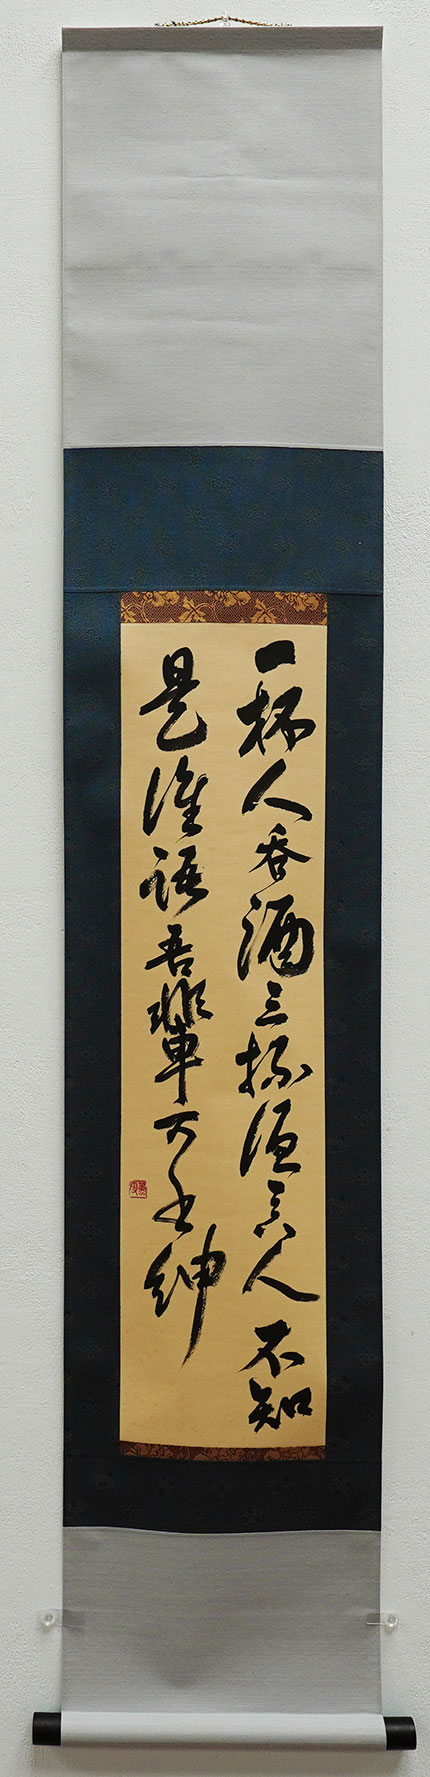 一杯人呑酒三杯酒呑人不知
是誰語吾輩可書紳